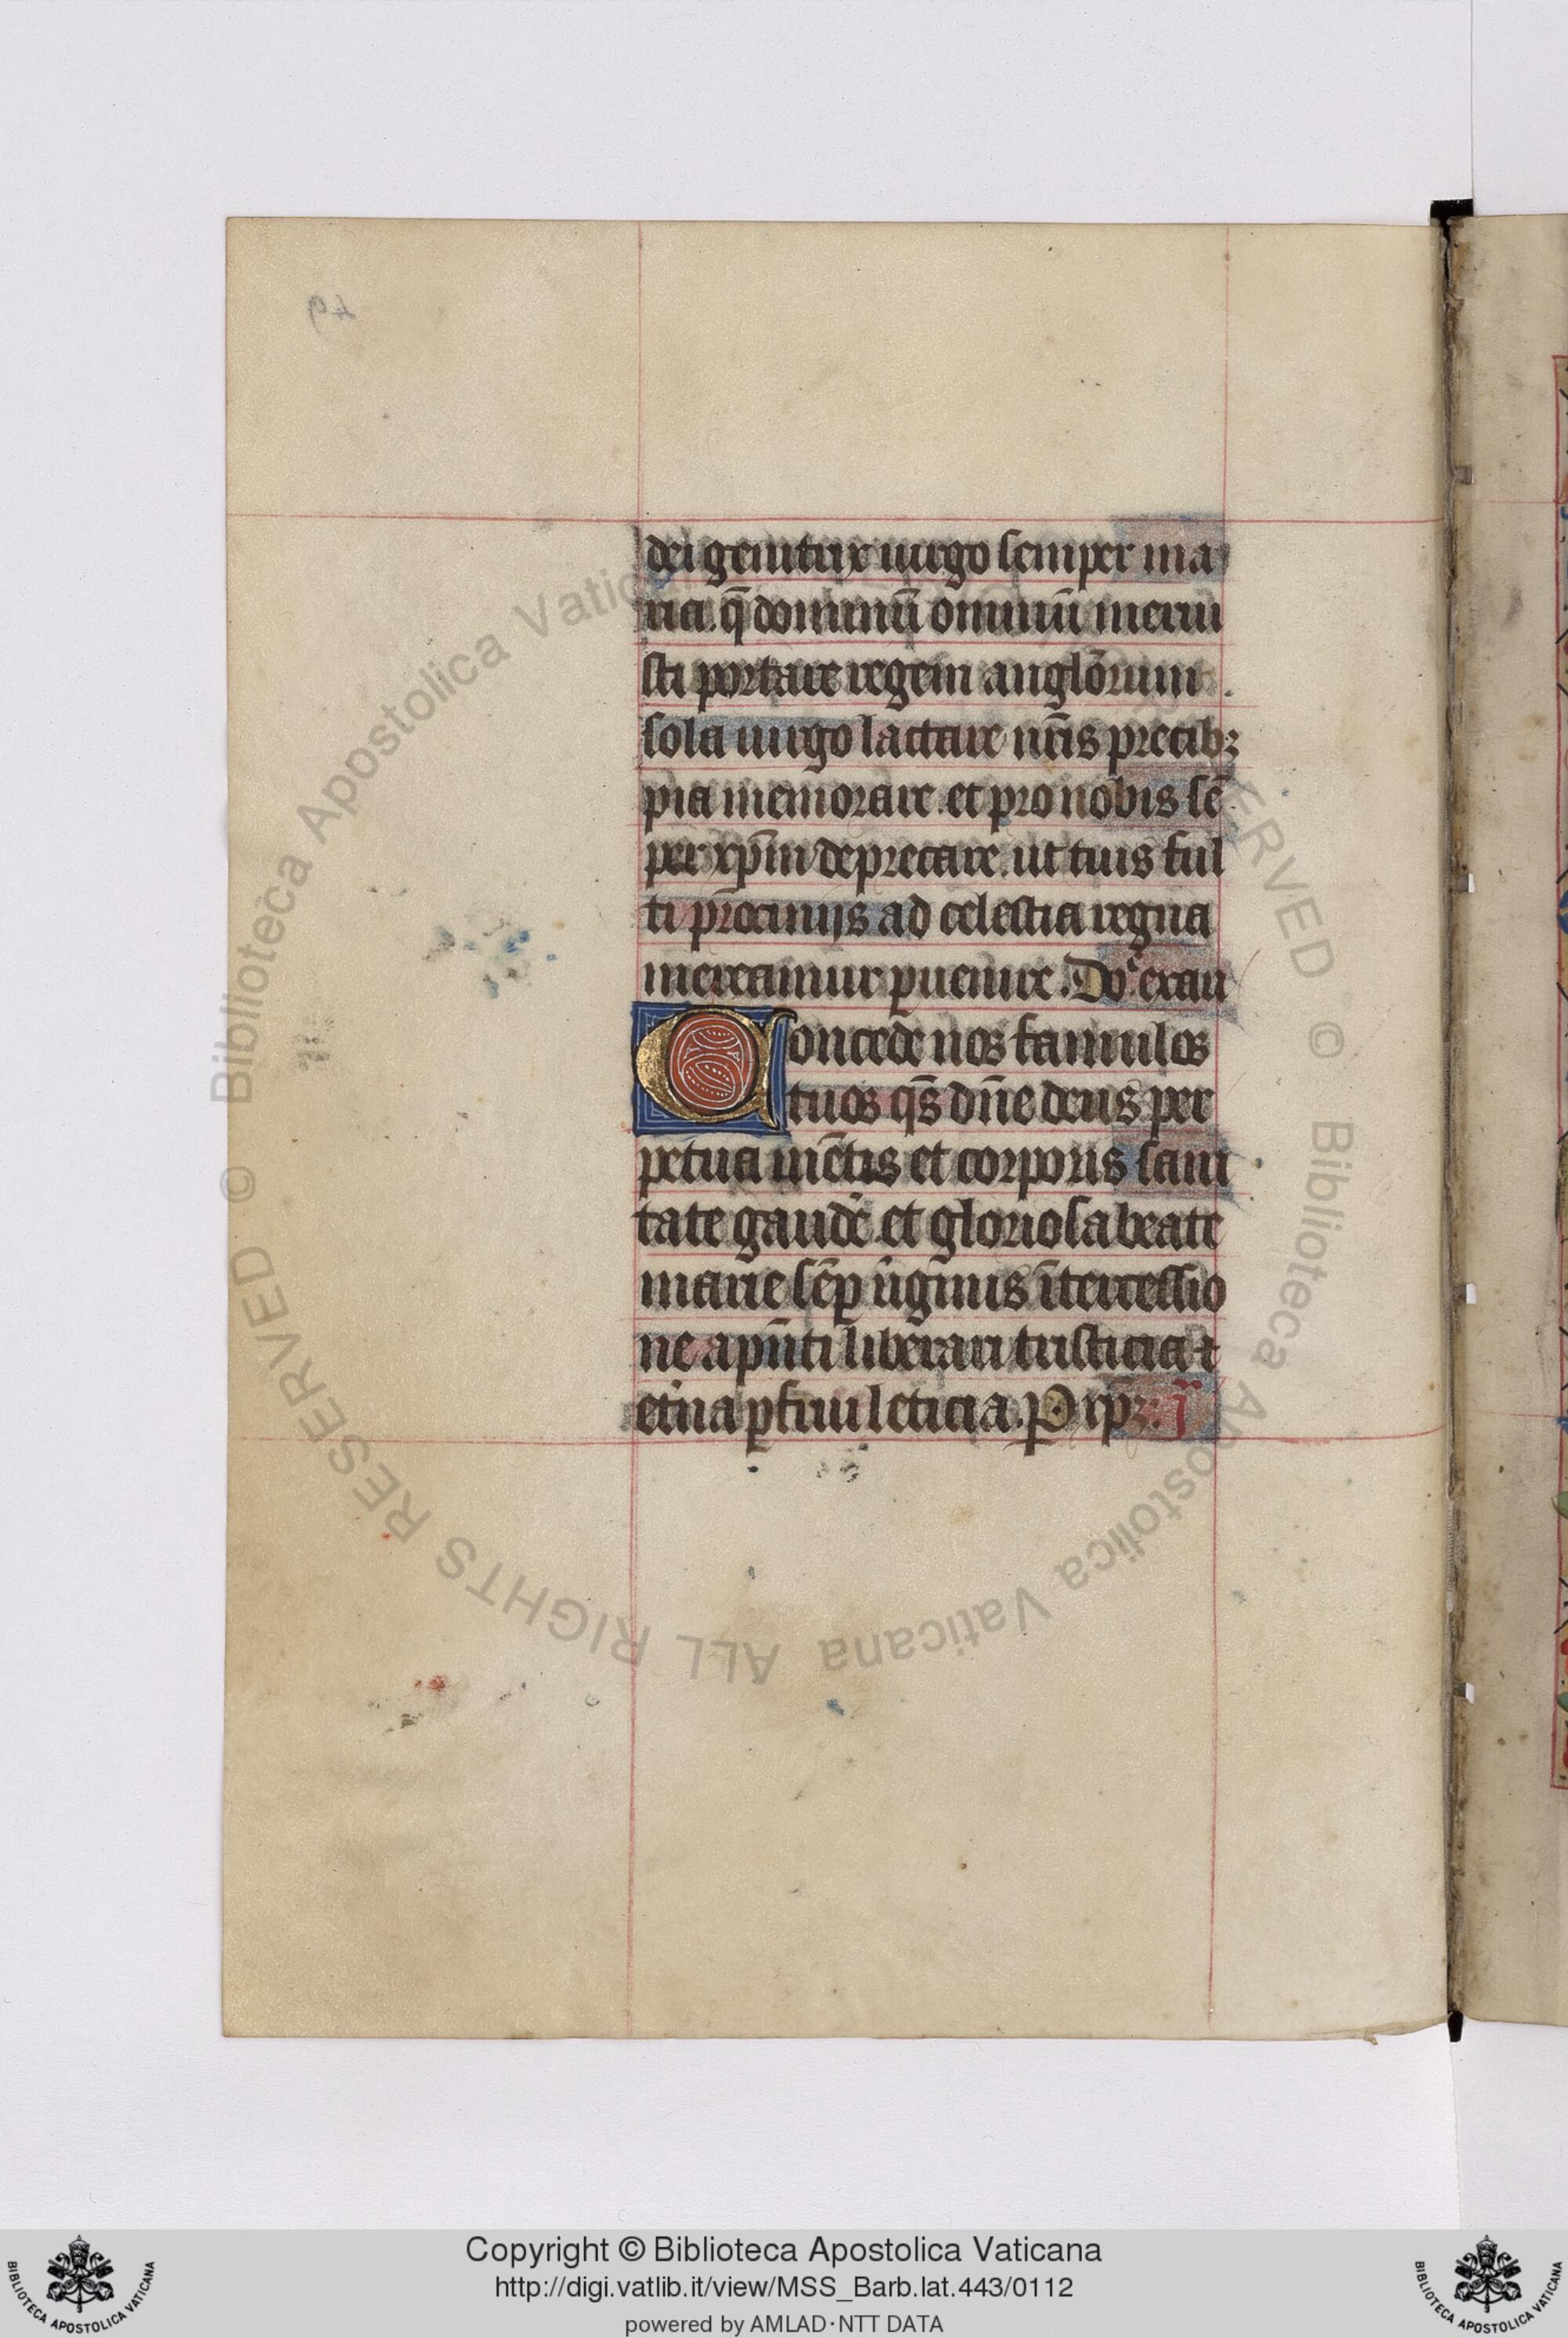 dei genitrix uirgo semper ma
ria. q̄ dominū omniū merui
sti portare regem anglōrum .
sola uirgo lactare nr̄is precibꝫ
pia memorare. et pro nobis sē
per xp̄m deprecare. ut tuis ful
ti p̄rocinijs ad celestia regna
mereamur ꝑuenire. Do᷑ exau
Concede nos famulos
tuos qs̄ dn̄e deus per
petua mētis et corporis sani
tate gaudē. et gloriosa beate
marie sēꝑ uͥginis ītercessio
ne a pn̄ti liberari tristicia ⁊
et̄na ꝑfrui leticia. P xp̄ꝫ.
49
© Biblioteca Apostolica Vaticana ALL RIGHTS RESERVED
© Biblioteca Apostolica Vaticana ALL RIGHTS RESERVED
Copyright © Biblioteca Apostolica Vaticana
http://digi.vatlib.it/view/MSS_Barb.lat.443/0112
powered by AMLAD·NTT DATA
BIBLIOTECA APOSTOLICA VATICANA
BIBLIOTECA APOSTOLICA VATICANA